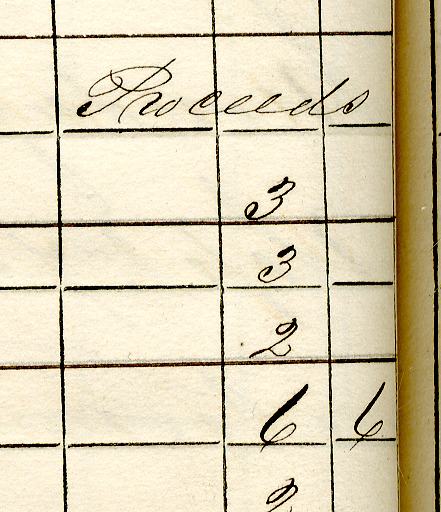 Proceeds
3
3
2
6 6
2